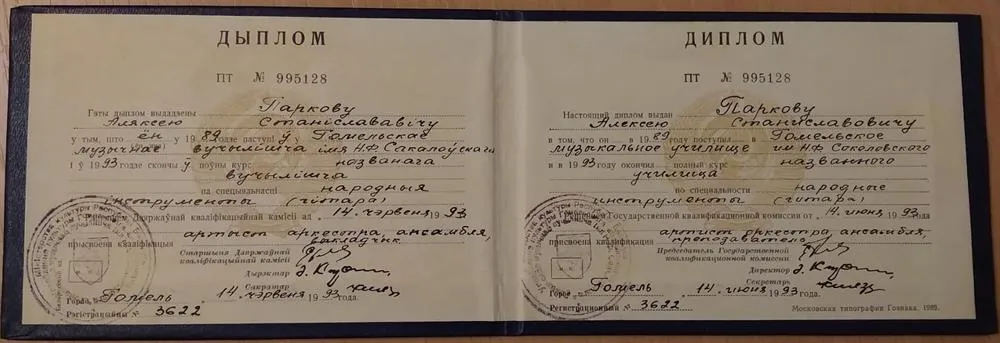 ДЫПЛОМ
ПТ № 995128
Гэты дыплом выдадзены Паркову
Аляксею Станіслававічу
у тым, што ён у 1989 годзе паступіў у Гомельскае
музычнае вучылішча імя Н.Ф. Сакалоўскага
і ў 1993 годзе скончыў поўны курс названага
вучылішча
па спецыяльнасці народныя
інструменты (гітара)
Дзяржаўнай кваліфікацыйнай камісіі ад 14 чэрвеня 1993
прысвоена кваліфікацыя артыст аркестра, ансамбля,
выкладчык
Старшыня Дзяржаўнай
кваліфікацыйнай камісіі
Дырэктар
Сакратар
Горад Гомель 14 чэрвеня 1993 года.
Рэгістрацыйны № 3622
ДИПЛОМ
ПТ № 995128
Настоящий диплом выдан Паркову
Алексею Станиславовичу
в том, что он в 1989 году поступил в Гомельское
музыкальное училище им. Н.Ф. Соколовского
и в 1993 году окончил полный курс названного
училища
по специальности народные
инструменты (гитара)
Государственной квалификационной комиссии от 14 июня 1993 года
присвоена квалификация артист оркестра, ансамбля,
преподаватель
Председатель Государственной
квалификационной комиссии
Директор
Секретарь
Город Гомель 14 июня 1993 года.
Регистрационный № 3622
Московская типография Гознака. 1989.